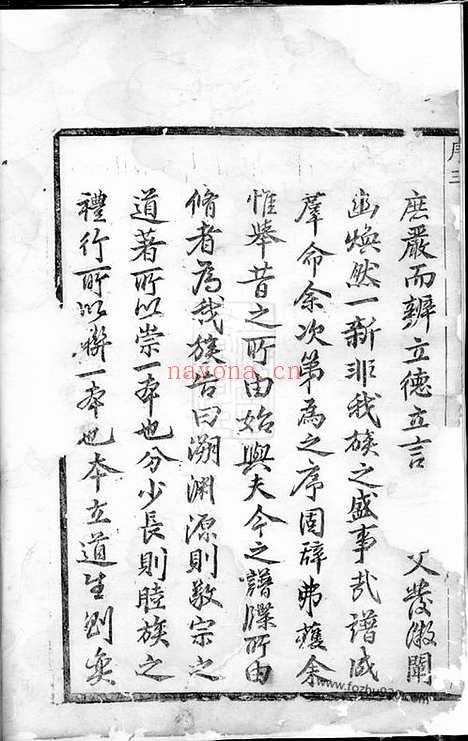 序三
庶嚴而辨立德立言 文發微闡
幽煥然一新非我族之盛事哉譜成
羣命余次第為之序固辭弗獲余
惟舉昔之所由始與夫今之譜牒所由
脩者為我族告曰溯淵源則敬宗之
道著所以崇一本也分少長則睦族之
禮行所以聯一本也本立道生則矣
nayona.cn